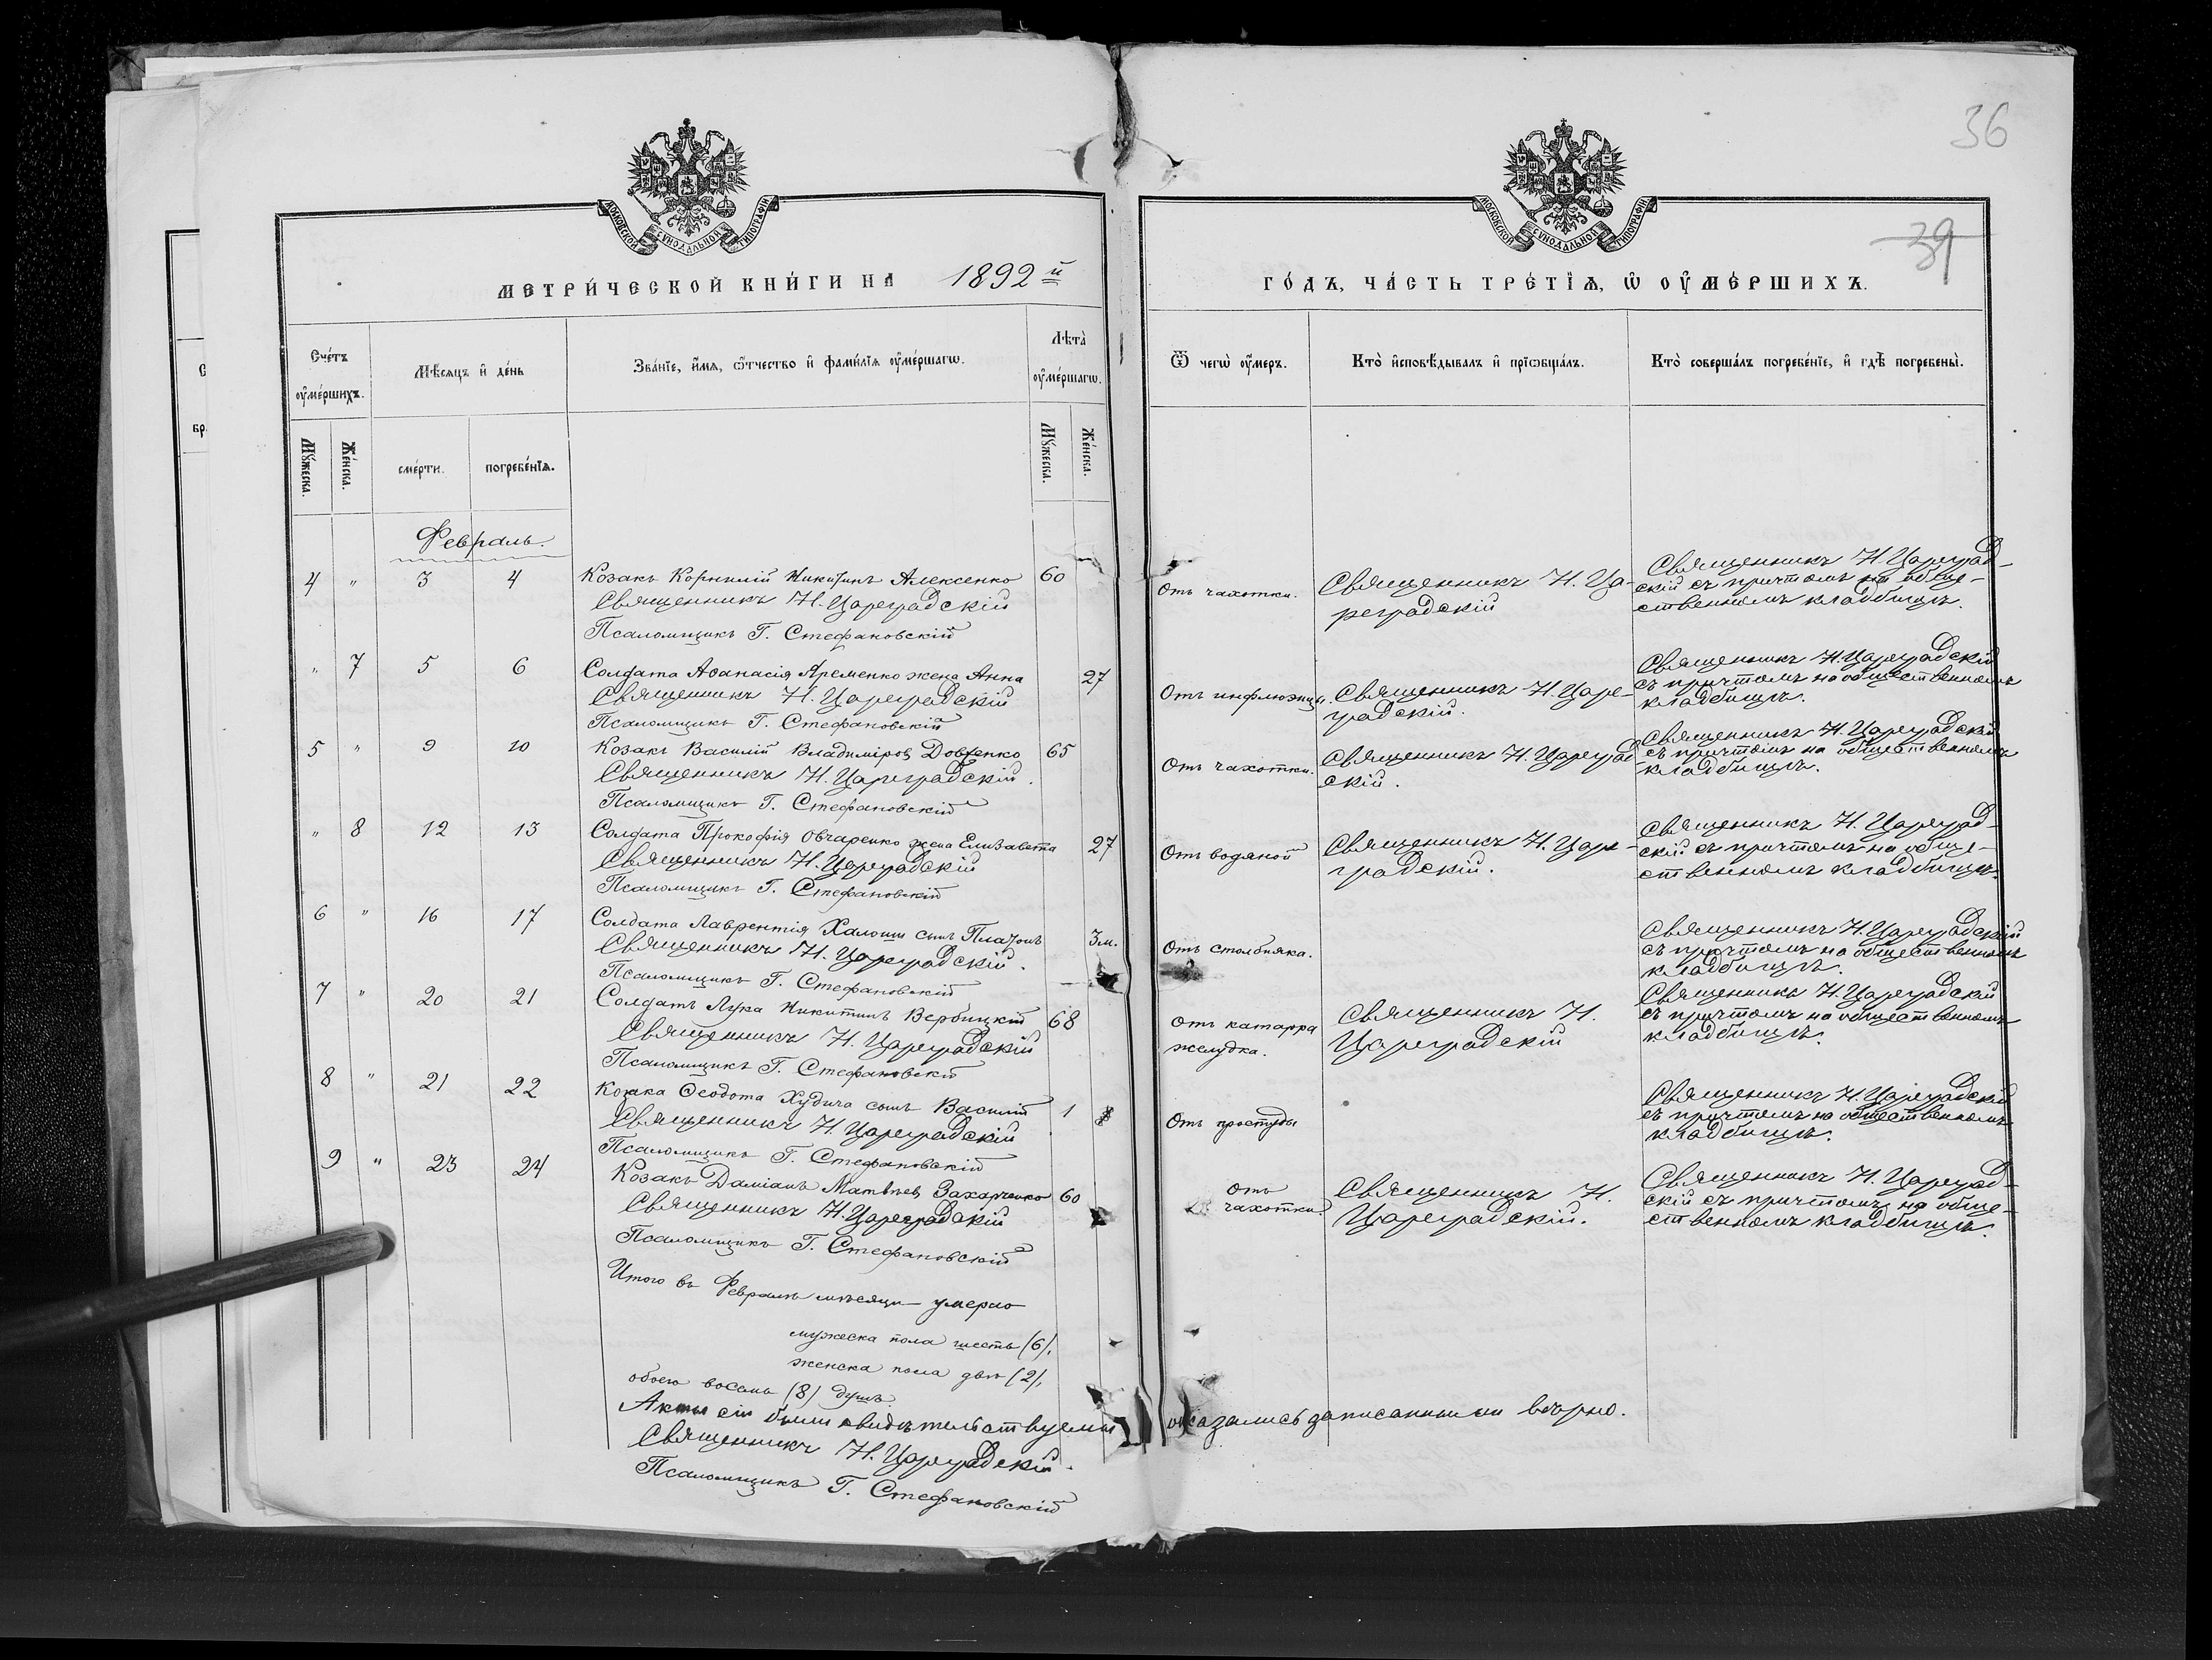 36
39
МОСКОВСКОЙ СѴНОДАЛЬНОЙ ТИПОГРАФІИ
МОСКОВСКОЙ СѴНОДАЛЬНОЙ ТИПОГРАФІИ
МЕТРИ́ЧЕСКОЙ КНИ́ГИ НА 1892й
ГО́ДЪ, ЧА́СТЬ ТРЕ́ТІѦ, Ѡ ОУ҆МЕ́РШИХЪ.
Сче́тъ оу҆ме́ршихъ.
Мѣ́сѧцъ и҆ де́нь
Зва́нїе, и҆́мѧ, ѻ҆́тчество и҆ фамѝлїѧ оу҆ме́ршагѡ.
Лѣта̀ оу҆ме́ршагѡ.
Ѿ чегѡ̀ оу҆́меръ.
Кто̀ и҆сповѣ́дывалъ и҆ прїѡбща́лъ.
Кто̀ соверша́лъ погребе́нїе, и҆ гдѣ̀ погребены̀.
Мꙋ́жеска.
Же́нска.
сме́рти.
погребе́нїѧ.
Мꙋ́жеска.
Же́нска.
Февраль.
4 " 3 4 Козакъ Корнилій Никитинъ Алексенко 60
Священникъ Н. Цареградскій
Псаломщикъ Г. Стефановскій
Отъ чахотки.
Священникъ Н. Ца-
реградскій
Священникъ Н. Цареград-
скій съ причтомъ на обще-
ственномъ кладбищѣ.
" 7 5 6 Солдата Аѳанасія Яременко жена Анна 27
Священникъ Н. Цареградскій
Псаломщикъ Г. Стефановскій
Отъ инфлюэнцы.
Священникъ Н. Царе-
градскій.
Священникъ Н. Цареградскій
съ причтомъ на общественномъ
кладбищѣ.
5 " 9 10 Козакъ Василій Владиміровъ Довженко 65
Священникъ Н. Цареградскій.
Псаломщикъ Г. Стефановскій
Отъ чахотки.
Священникъ Н. Цареград-
скій.
Священникъ Н. Цареградскій
съ причтомъ на общественномъ
кладбищѣ.
" 8 12 13 Солдата Прокофія Овчаренко жена Елизавета 27
Священникъ Н. Цареградскій
Псаломщикъ Г. Стефановскій
Отъ водяной
Священникъ Н. Царе-
градскій.
Священникъ Н. Цареград-
скій съ причтомъ на обще-
ственномъ кладбищѣ.
6 " 16 17 Солдата Лаврентія Халоши сынъ Платонъ 3м.
Священникъ Н. Цареградскій.
Псаломщикъ Г. Стефановскій
Отъ столбняка.
Священникъ Н. Цареградскій
съ причтомъ на общественномъ
кладбищѣ.
7 " 20 21 Солдатъ Лука Никитинъ Вербицкій 68
Священникъ Н. Цареградскій
Псаломщикъ Г. Стефановскій
Отъ катарра
желудка.
Священникъ Н.
Цареградскій
Священникъ Н. Цареградскій
съ причтомъ на общественномъ
кладбищѣ.
8 " 21 22 Козака Ѳеодота Худича сынъ Василій 1
Священникъ Н. Цареградскій
Псаломщикъ Г. Стефановскій
Отъ простуды
Священникъ Н. Цареградскій
съ причтомъ на общественномъ
кладбищѣ.
9 " 23 24 Козакъ Даміанъ Матвѣевъ Захарченко 60
Священникъ Н. Цареградскій
Псаломщикъ Г. Стефановскій
отъ
чахотки.
Священникъ Н.
Цареградскій.
Священникъ Н. Цареград-
скій съ причтомъ на обще-
ственномъ кладбищѣ.
Итого въ Февралѣ мѣсяцѣ умерло
мужеска пола шесть (6),
женска пола двѣ (2),
обоего восемь (8) душъ.
Акты сіи были свидѣтельствуемы и оказались записанными вѣрно.
Священникъ Н. Цареградскій.
Псаломщикъ Г. Стефановскій